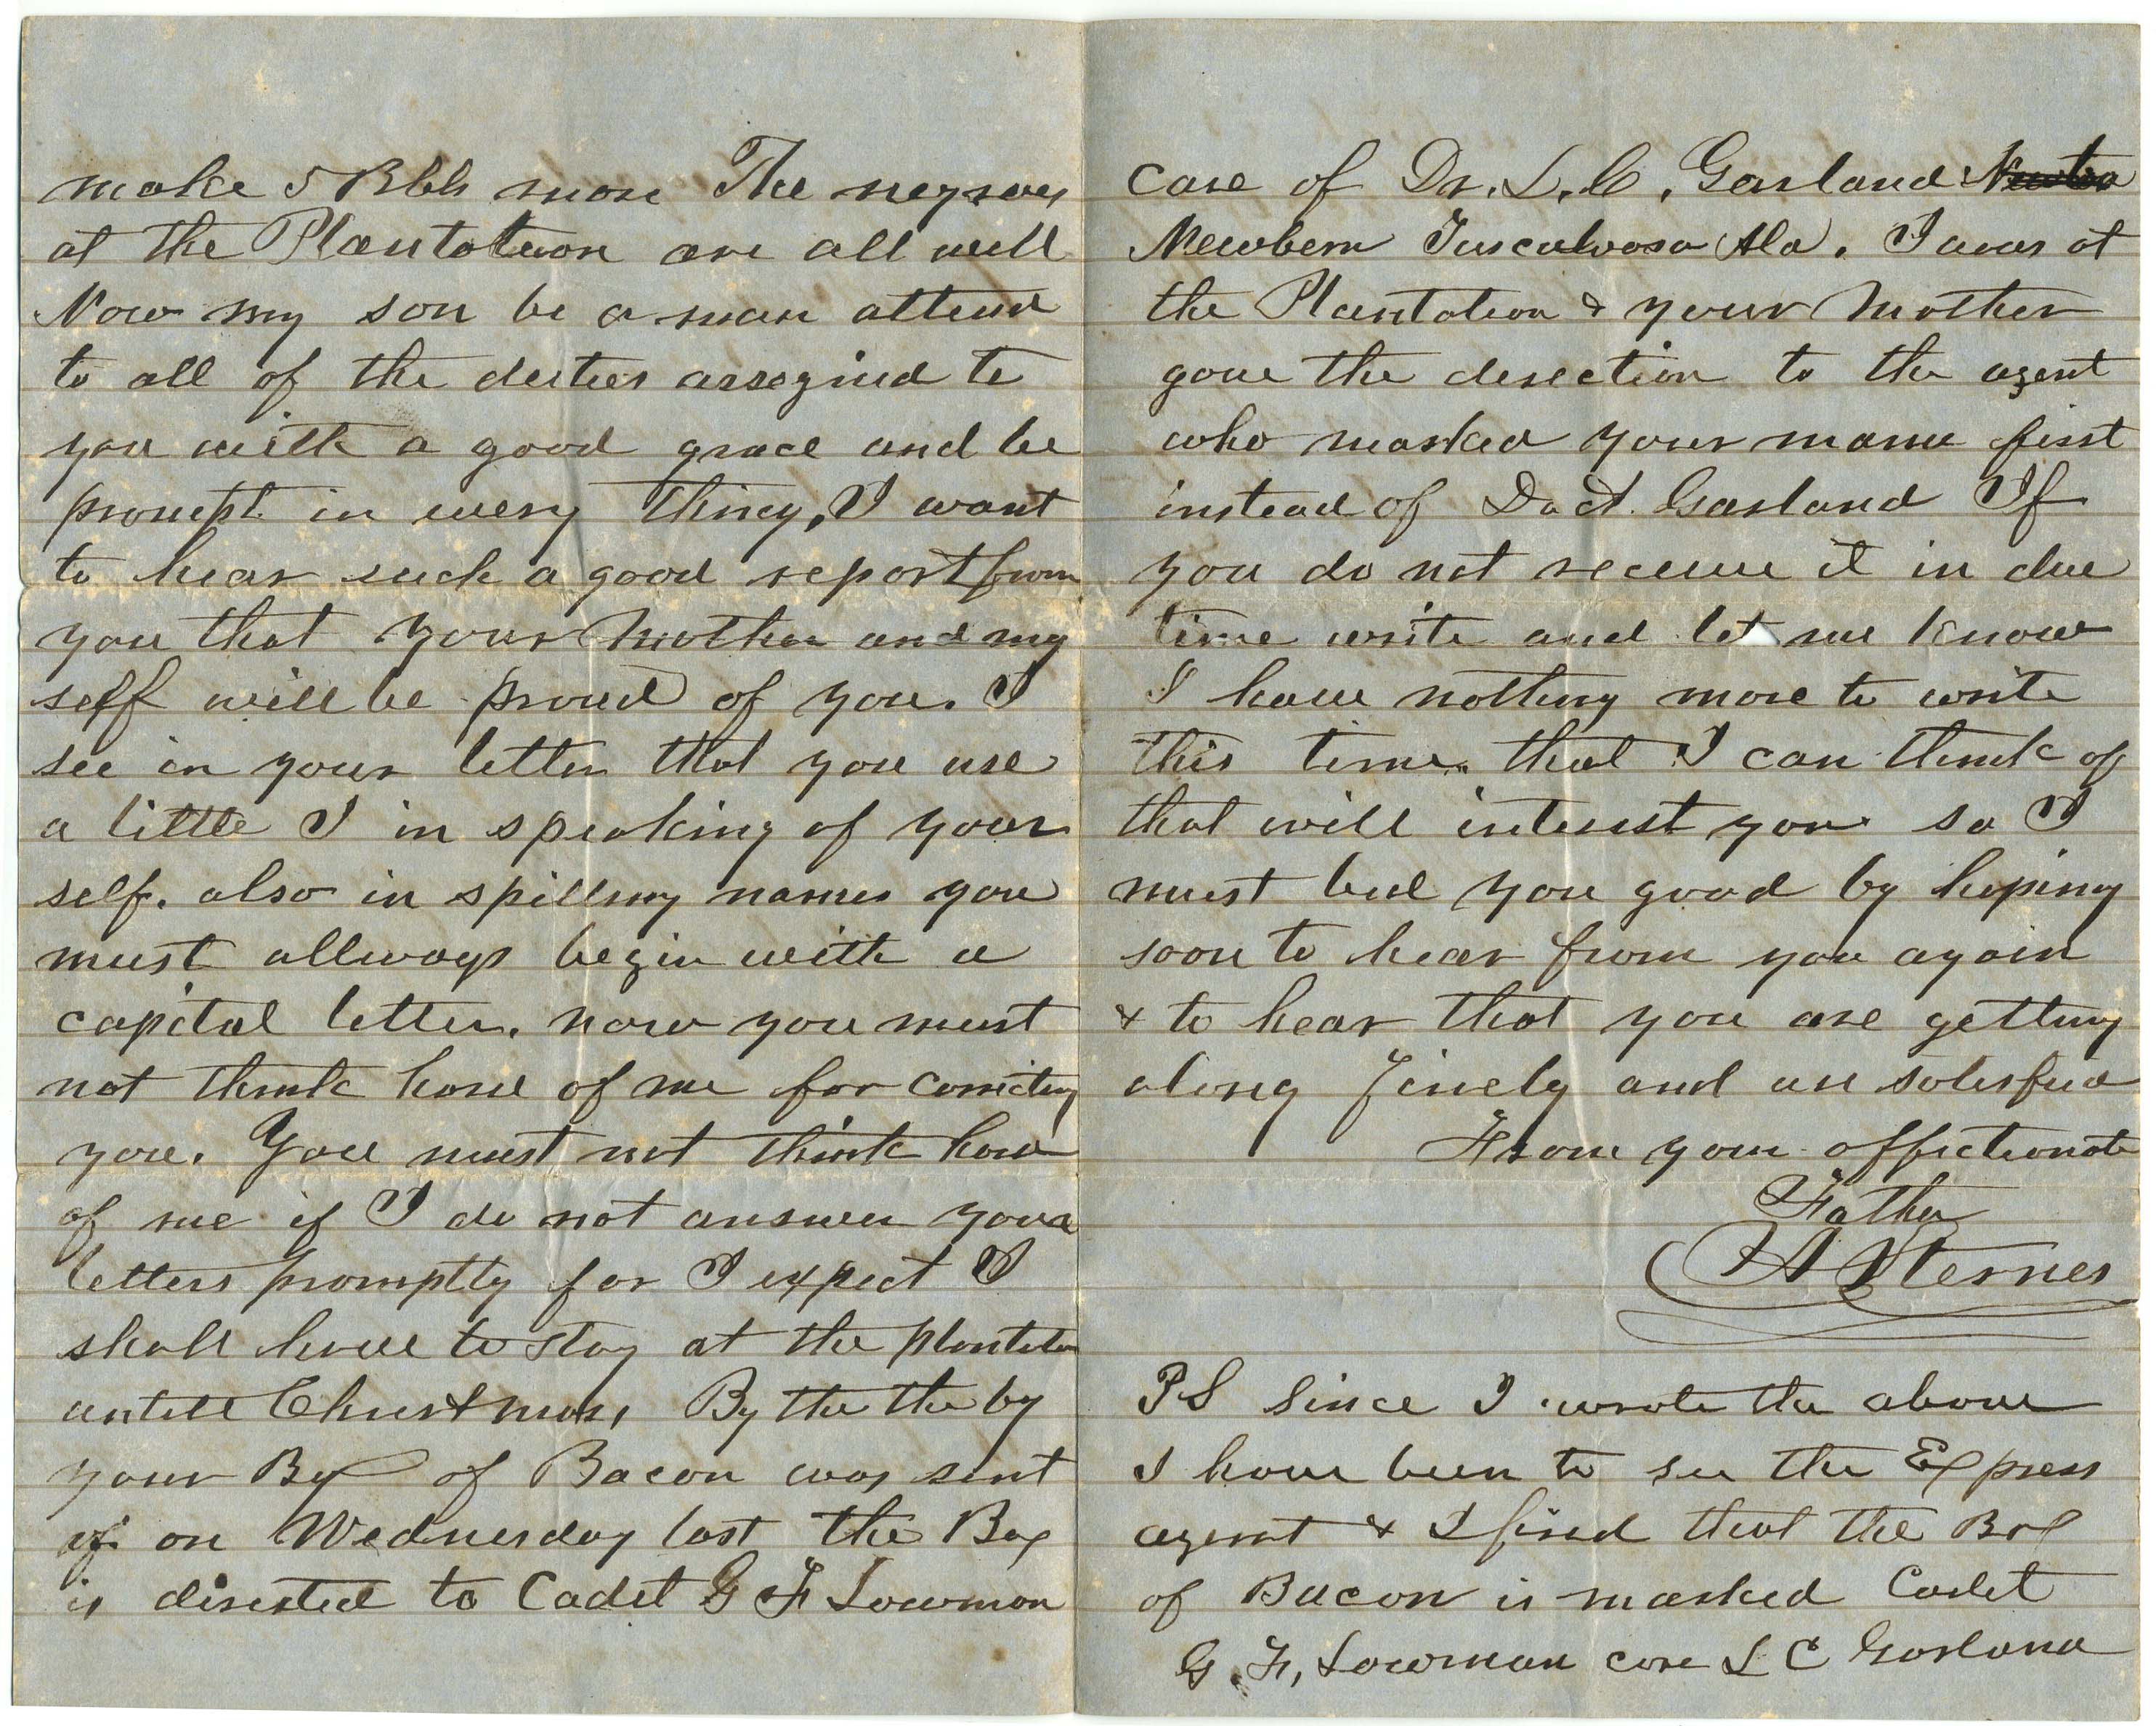 make 5 Bbls more The negroes
at the Plantation are all well
Now my son be a man attend
to all of the duties assegned to
you with a good grace and be
prompt in every thing, I want
to hear such a good report from
you that your Mother and my
self will be proud of you. I
see in your letter that you use
a little I in speaking of your
self. also in spelling names you
must allways begin with a
capital letter. now you must
not think hard of me for correcting
you. You must not think hard
of me if I do not answer your
letters promptly for I expect I
shall have to stay at the plantation
untill Christmas, By the the by
your Box of Bacon was sent
of on Wednesday last the Box
is directed to Cadet G F Lowman
care of Dr. L. C. Garland
Newbern Tuscaloosa Ala. I was at
the Plantation & your Mother
gave the derection to the agent
who marked your name first
instead of Doct. Garland If
you do not receive it in due
time write and let me know
I have nothing more to write
this time that I can think of
that will interest you so I
must bid you good by hoping
soon to hear from you again
& to hear that you are getting
along finely and are satisfied
From your affectionate
Father
A Sternes
PS Since I wrote the above
I have been to see the Express
agent & I find that the Box
of Bacon is marked Cadet
G. F, Lowman care L C Garland